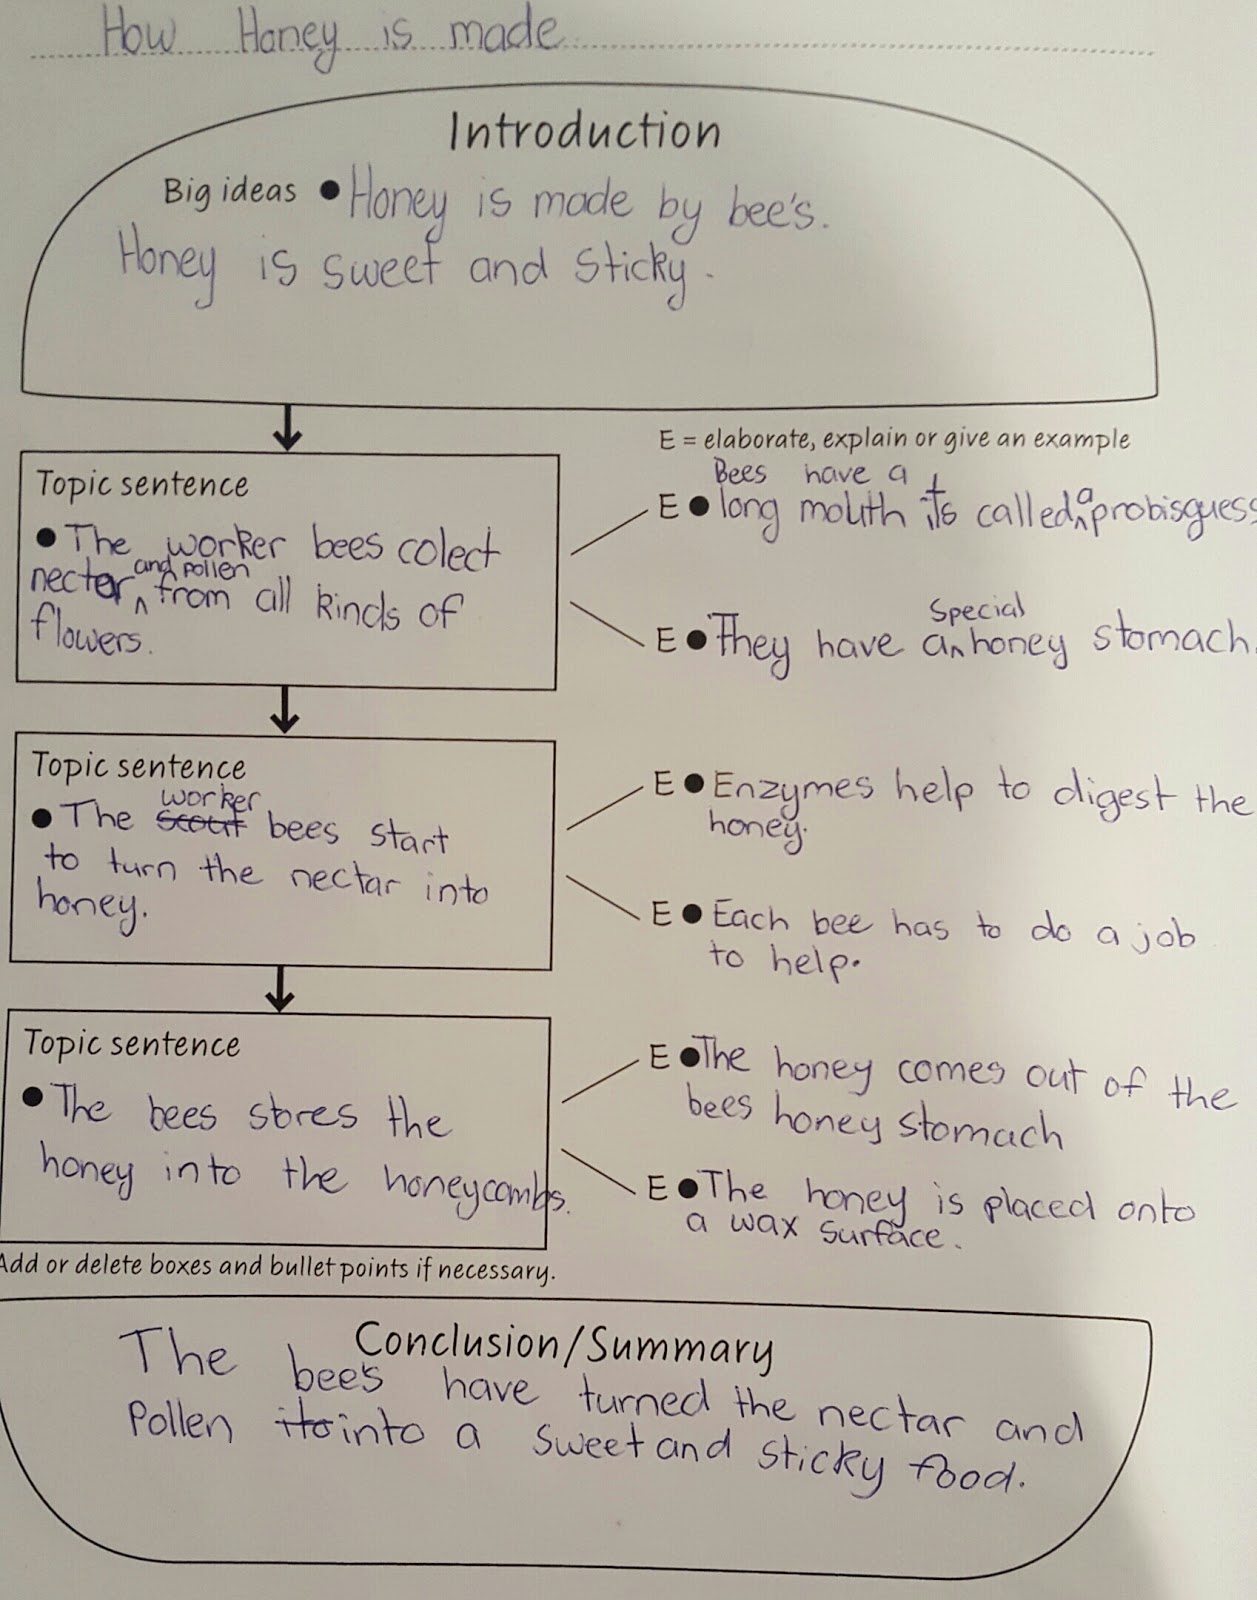 How Honey is made
Introduction
Big ideas • Honey is made by bee's.
Honey is sweet and sticky.
Topic sentence
• The worker bees colect
and pollen
nectar ^ from all kinds of
flowers.
E = elaborate, explain or give an example
Bees have a
E • long mouth its called ^a probisguess
special
E • They have a ^ honey stomach.
Topic sentence
worker
• The scout bees start
to turn the nectar into
honey.
E • Enzymes help to digest the
honey.
E • Each bee has to do a job
to help.
Topic sentence
• The bees stores the
honey into the honeycombs.
E • The honey comes out of the
bees honey stomach
E • The honey is placed onto
a wax surface.
Add or delete boxes and bullet points if necessary.
Conclusion/Summary
The bee's have turned the nectar and
Pollen ito into a sweet and sticky food.